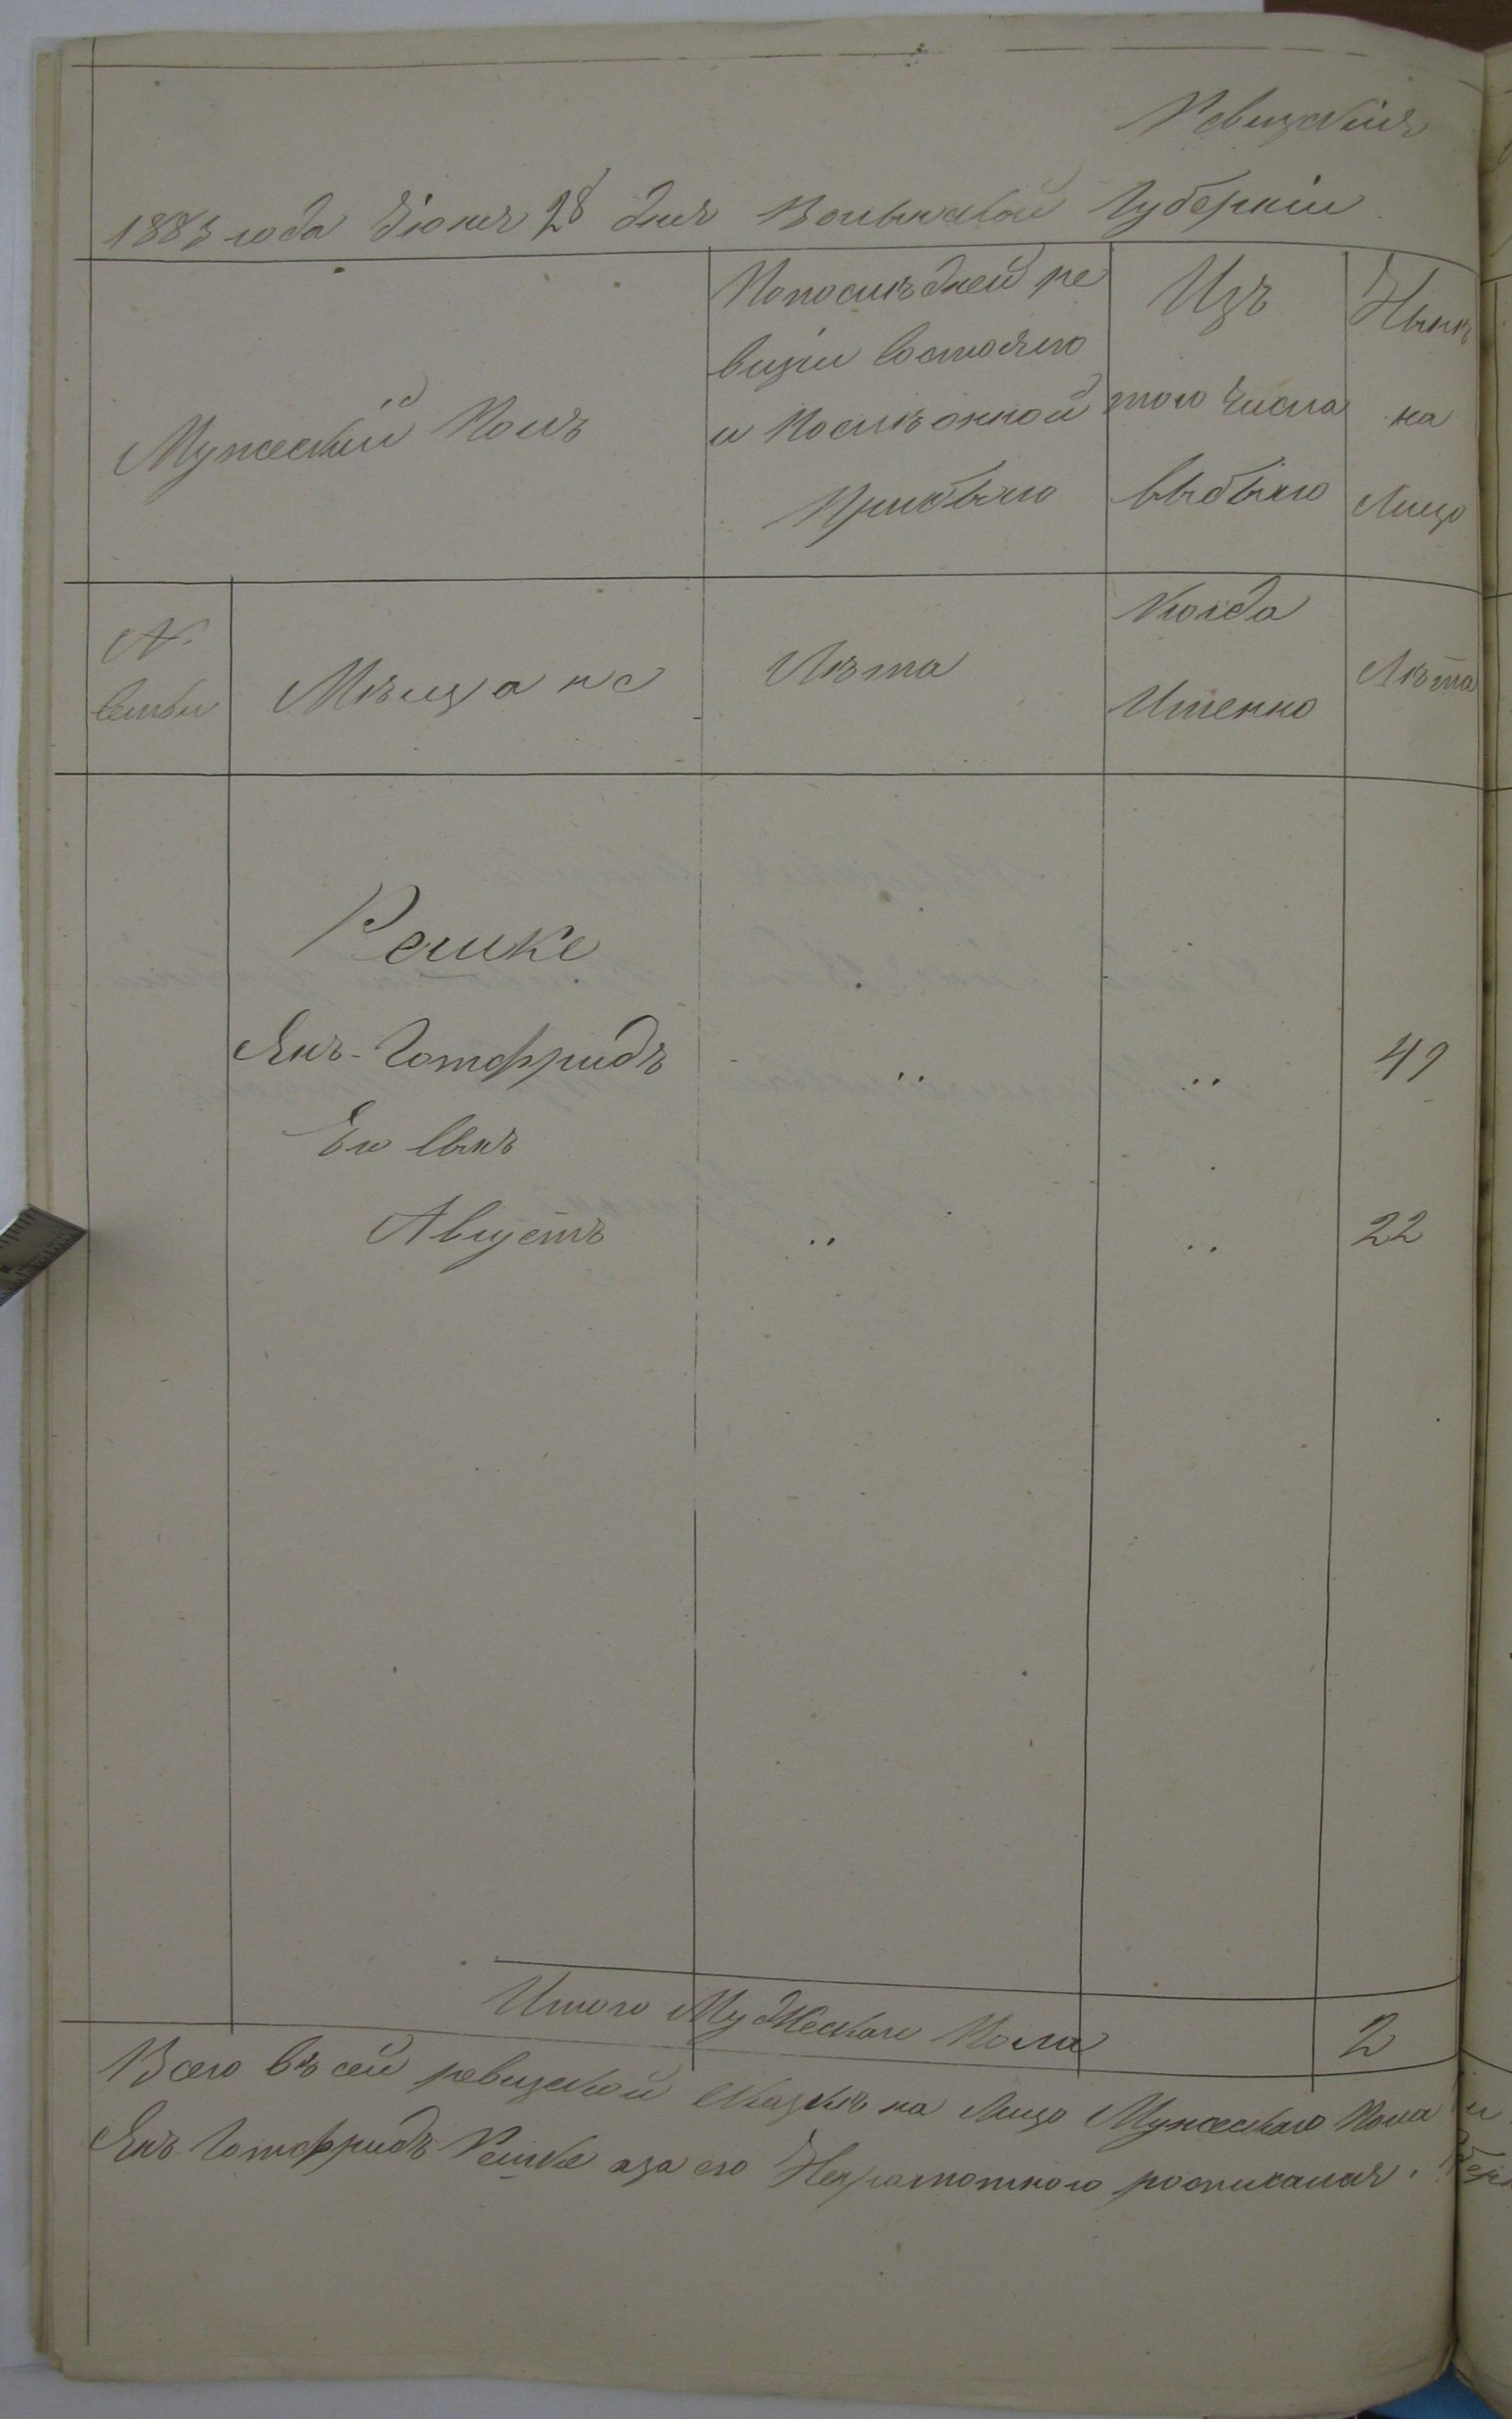 Ревизкія
1883 года Іюня 28 дня Волынской Губерніи
Мужескій Полъ
Попослѣдней ре
визіи состояло
и Послѣ онной
Прибыло
Изъ
того числа
выбыло
Нынѣ
на
Лицо
№
семьи
Мѣщане
Лѣта
Когда
Именно
Лѣта
Решке
Янъ-Готфридъ " " 49
Его сынъ
Августъ " " 22
Итого Мужескаго Пола 2
Всего въ сей ревизкой сказкѣ на Лицо Мужескаго Пола
Янъ Готфридъ Решке аза его Неграмотного росписался.